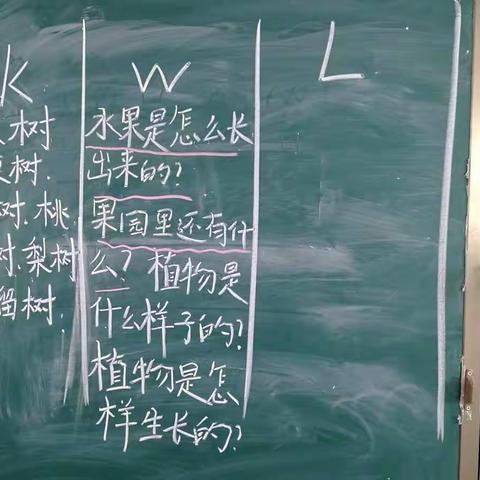 K
树
树.
树.桃
树.梨树
树.
W
水果是怎么长
出来的?
果园里还有什
么?植物是
什么样子的?
植物是怎
样生长的?
L